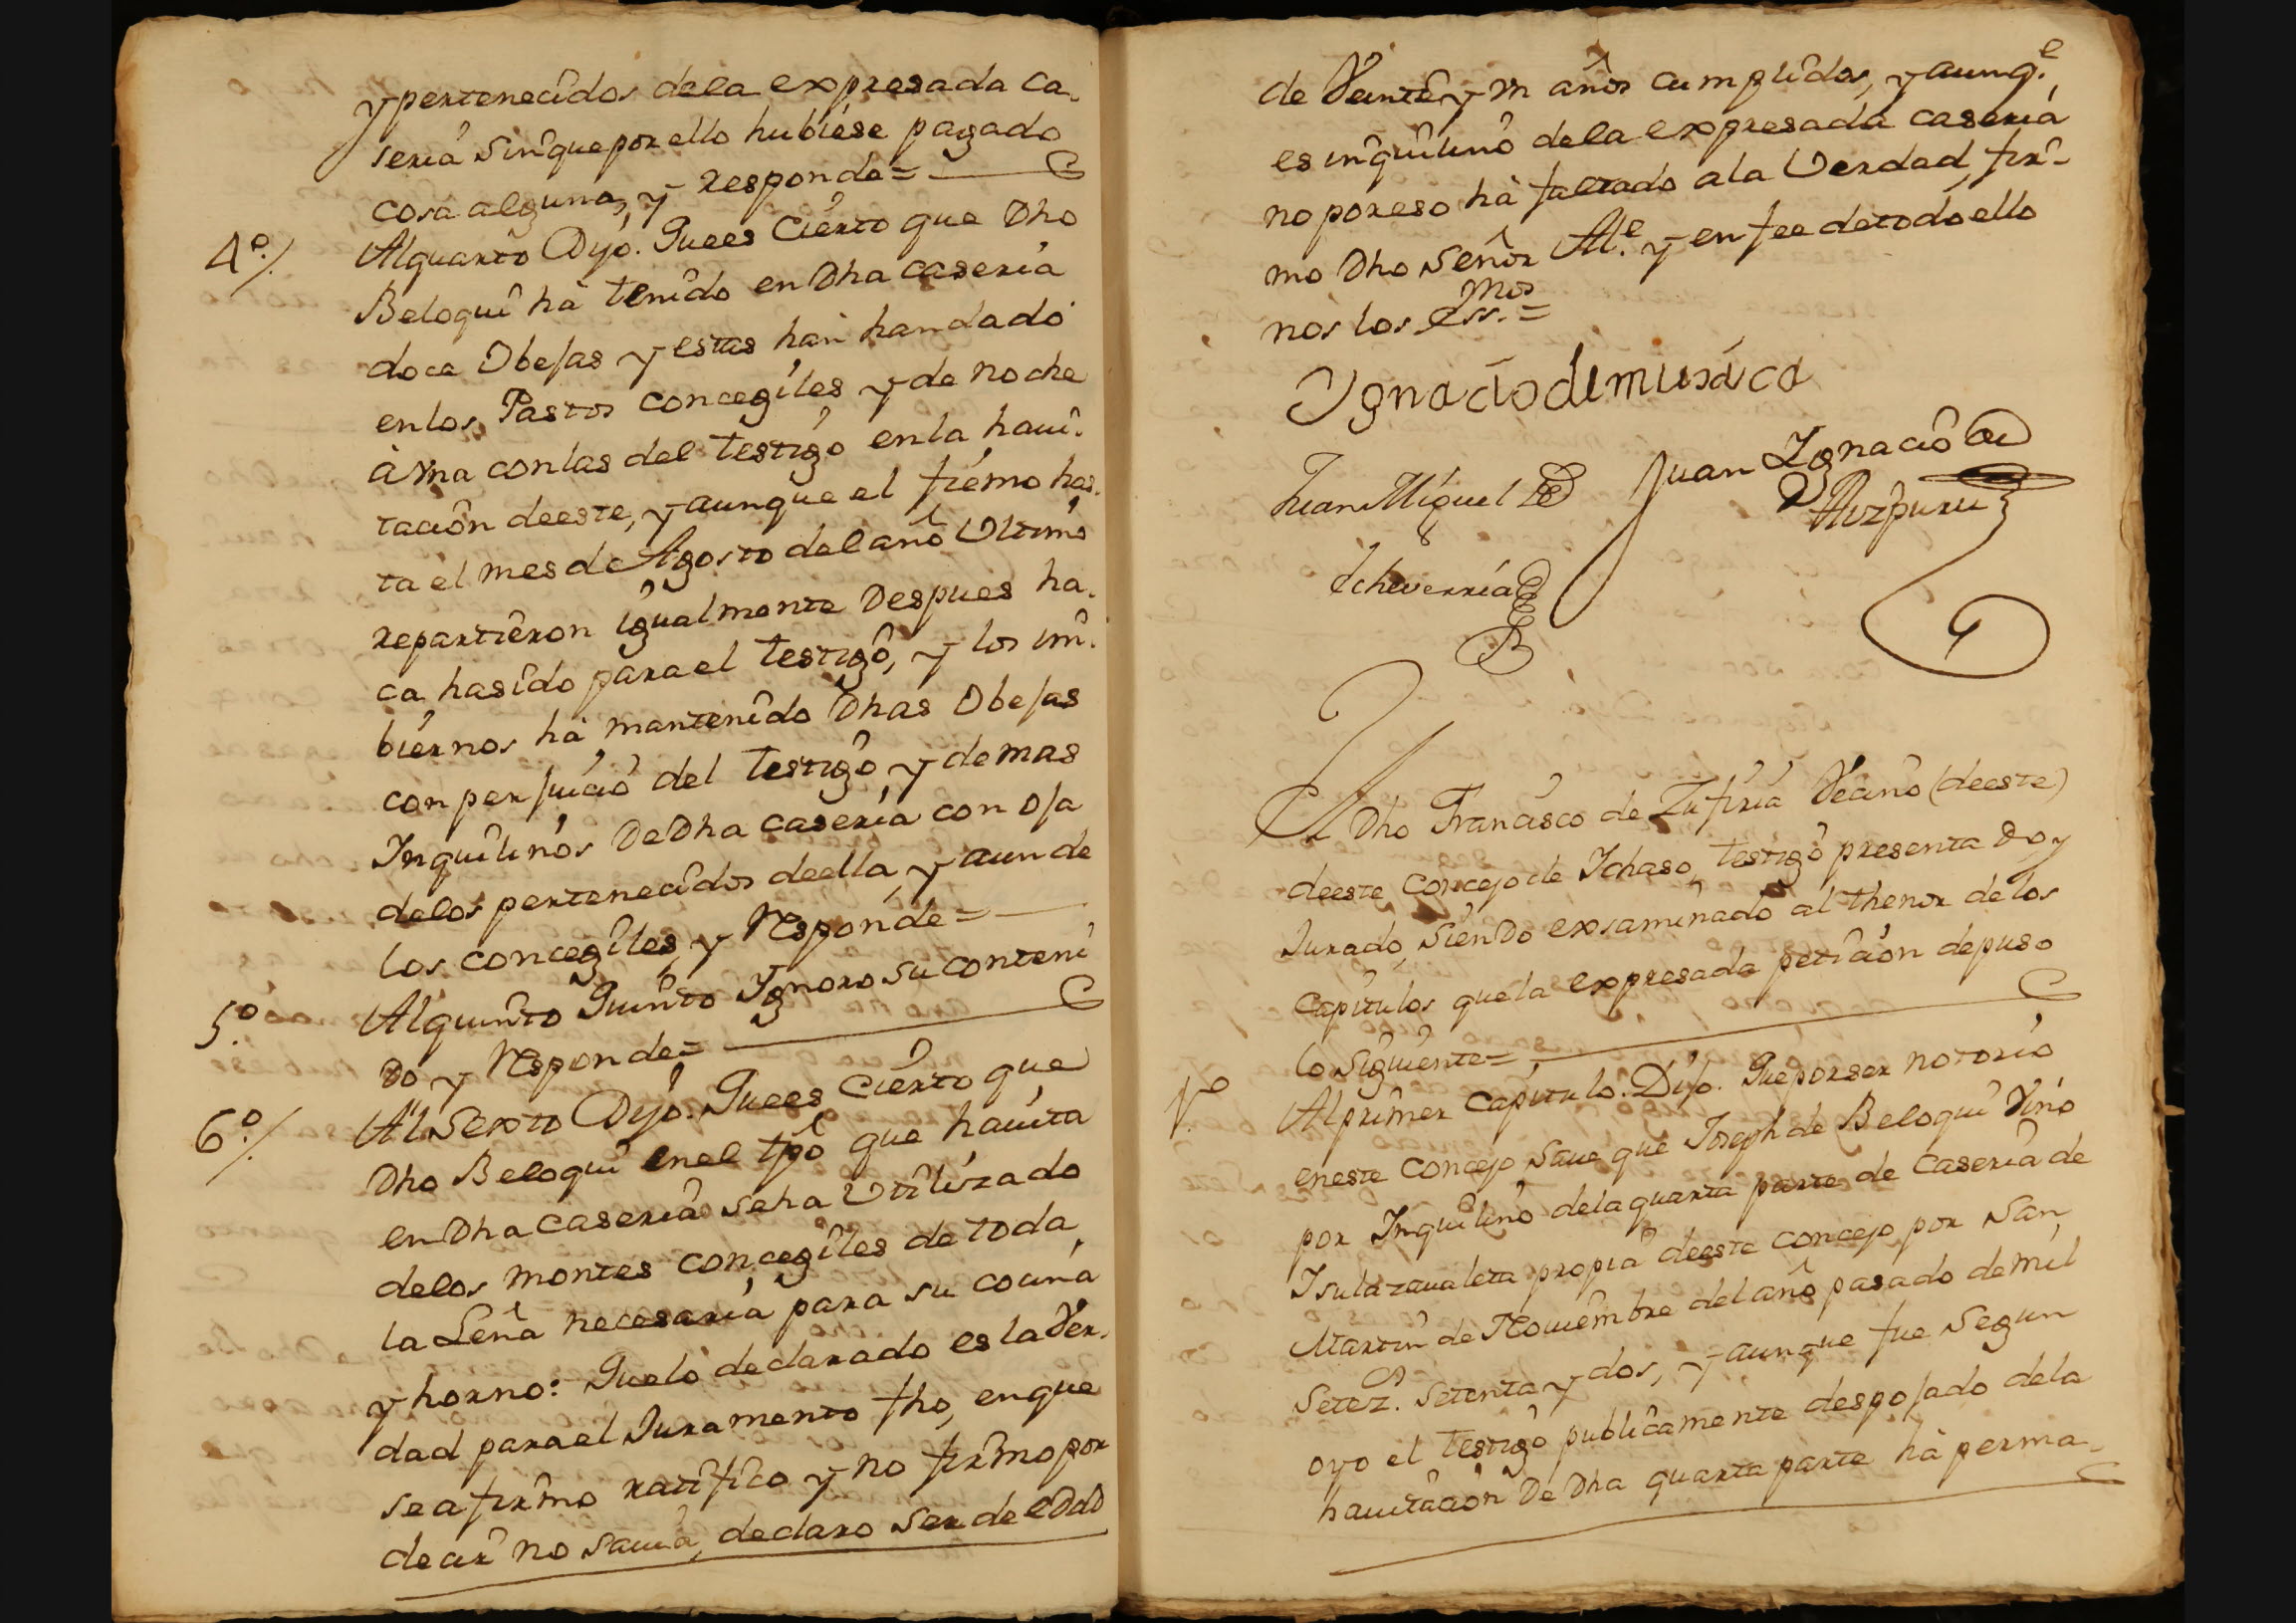 y pertenecidos de la expresada ca-
seria sin que por ello hubiese pagado
cosa alguna, y responde=
4º./. Al quarto Dijo. Que es Cierto que Dho
Beloqui hà tenido en Dha caseria
doce Obejas y estas han handado
en los Pastos concegiles y de noche
à vna con las del testigo en la havi-
tacion de este, y aunque el fiemo has-
ta el mes de Agosto del año Ultimo
repartieron igualmente Despues ha-
ca ha sido para el testigo, y los im-
biernos hà mantenido Dhas Obejas
con perjuicio del testigo y demas
Inquilinos De Dha caseria con oja
de los pertenecidos de ella, y aun de
los concegiles, y Responde=
5.º Al quinto Quinto Ygnoro su conteni
do y Responde=
6.º/. Al Sexto Dijo. Que es Cierto que
Dho Beloqui en el tpô que havita
en Dha caseria se ha Utilizado
de los montes concegiles de toda
la Leña necesaria para su cocina
y horno: Que lo declarado es la Ver-
dad para el Juramento fho, en que
se afirmo ratifico y no firmo por
decir no savia, declaro ser de edad
de Veinte y vn años cumplidos, y aunq.e
es inquilino de la expresada caseria
no por eso hà faltado a la Verdad, fir-
mo Dho Señor Al.e y en fee de todo ello
nos los ess.mos=
Ygnacio de musica
Juan Miguel de
Juan Ygnacio de
Aizpuru
Echeverria
El Dho Francisco de Zufiria Vecino (de este)
de este Concejo de Ichaso, testigo presentado y
Jurado, siendo exsaminado al thenor de los
Capitulos que la expresada peticion depuso
lo siguiente=
1.º Al primer capitulo. Dijo. Que por ser notorio
en este Concejo save que Joseph de Beloqui Vino
por Inquilino de la quarta parte de Caseria de
Isulazavaleta propia de este concejo por San
Martin de Noviembre del año pasado de mil
Setez. Setenta y dos, y aunque fue Segun
oyo el testigo publicamente despojado de la
havitacion De Dha quarta parte hà perma-